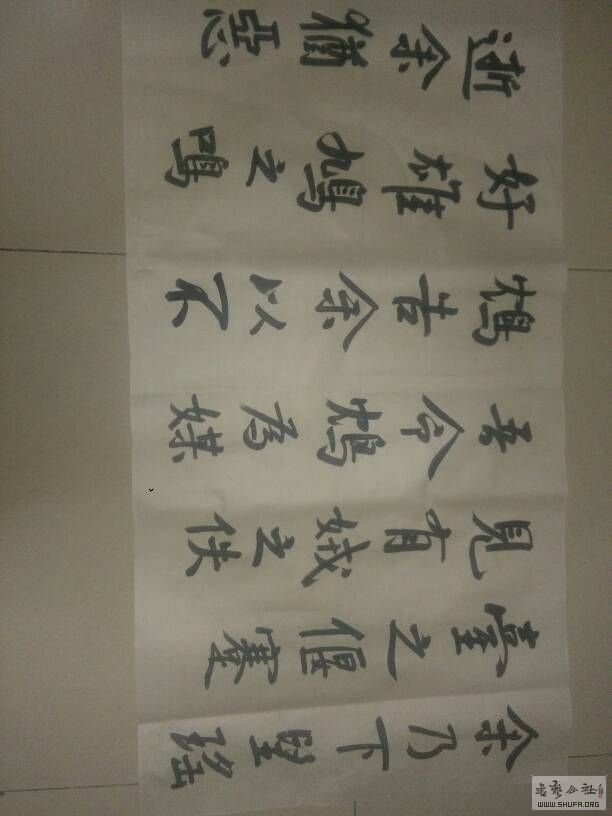 余乃下望瑤
臺之偃蹇
見有娀之佚
吾令鴆為媒
鴆告余以不
好雄鳩之鳴
逝余猶惡
書藝公社
WWW.SHUFA.ORG